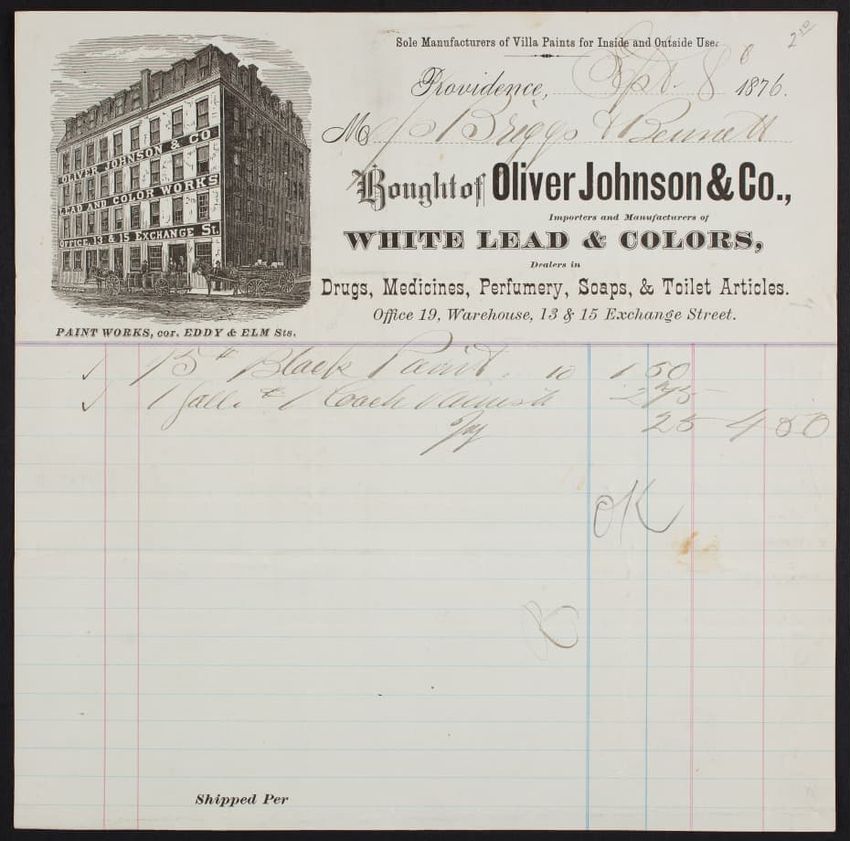 Sole Manufacturers of Villa Paints for Inside and Outside Use.
2 50
Providence, Sept. 8 1876.
M Briggs & Bennett
Bought of Oliver Johnson & Co.,
Importers and Manufacturers of
WHITE LEAD & COLORS,
Dealers in
Drugs, Medicines, Perfumery, Soaps, & Toilet Articles.
Office 19, Warehouse, 13 & 15 Exchange Street.
OLIVER JOHNSON & CO.
LEAD AND COLOR WORKS
OFFICE, 13 & 15 EXCHANGE St.
PAINT WORKS, cor. EDDY & ELM Sts.
√ 15 # Black Paint. 10 1 50
√ 1 Gall. 1 Coach Varnish 2 75
Jug 25 4 50
OK
Shipped Per